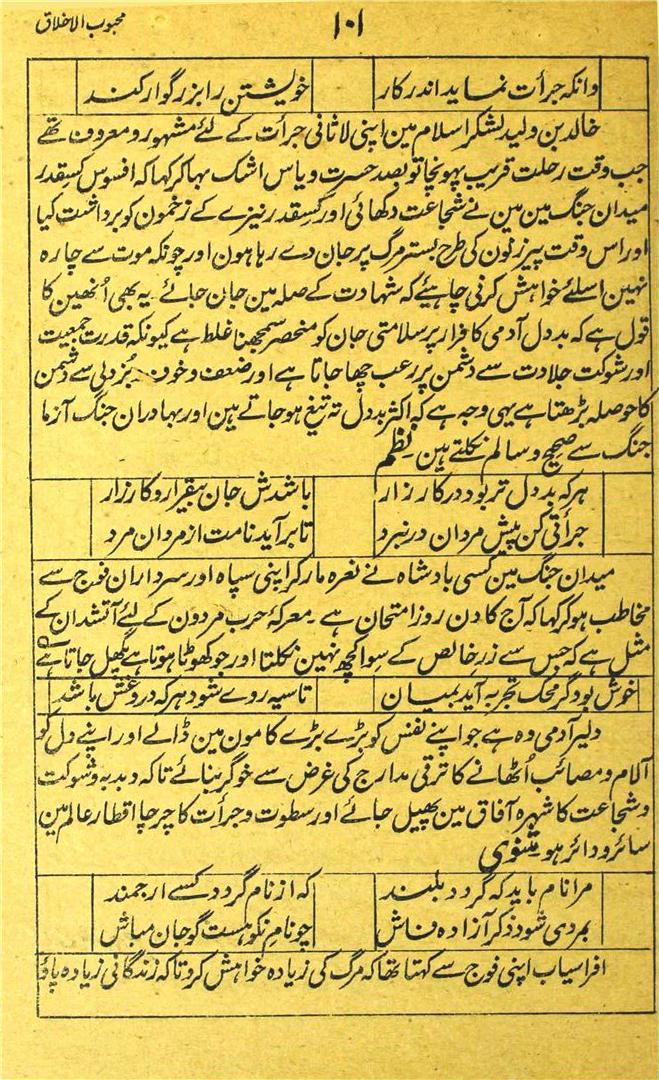 محبوب الاخلاق
۱۰۱
وانکہ جرأت نماید اندر کار خویشتن را بزرگوار کند
خالد بن ولید لشکر اسلام مین اپنی لاثانی جرأت کے لئے مشہور و معروف تھے
جب وقت رحلت قریب پہونچا تو بصد حسرت و یاس اشک بہا کر کہا کہ افسوس کسقدر
میدان جنگ مین مین نے شجاعت دکھائی اور کسقدر نیزے کے زخمون کو برداشت کیا
اور اس وقت پیرزنون کی طرح بستر مرگ پر جان دے رہا ہون اور چونکہ موت سے چارہ
نہین اسلئے خواہش کرنی چاہیئے کہ شہادت کے صلہ مین جان جائے۔ یہ بھی اُنھین کا
قول ہے کہ بددل آدمی کا فرار پر سلامتی جان کو منحصر سمجھنا غلط ہے کیونکہ قدرت جمعیت
اور شوکت جلادت سے دشمن پر رعب چھا جاتا ہے اور ضعف و خوف بُزدلی سے دشمن
کا حوصلہ بڑھتا ہے یہی وجہ ہے کہ اکثر بددل تہ تیغ ہو جاتے ہین اور بہادران جنگ آزما
جنگ سے صحیح و سالم نکلتے ہین۔ نظم
ہر کہ بددل تر بود در کارزار باشدش جان بیقرار و کارزار
جرأتی کن پیش مردان در نبرد تا برآید نامت از مردان مرد
میدان جنگ مین کسی بادشاہ نے نعرہ مار کر اپنی سپاہ اور سرداران فوج سے
مخاطب ہو کر کہا کہ آج کا دن روز امتحان ہے۔ معرکۂ حرب مردون کے لئے آتشدان کے
مثل ہے کہ جس سے زرِ خالص کے سوا کچھ نہین نکلتا اور جو کھوٹا ہوتا ہے پگھل جاتا ہے
خوش بود گر محک تجربہ آید بمیان تا سیہ روے شود ہر کہ دروغش باشد
دلیر آدمی وہ ہے جو اپنے نفس کو بڑے بڑے کامون مین ڈالے اور اپنے دل کو
آلام و مصائب اُٹھانے کا ترقی مدارج کی غرض سے خوگر بنائے تاکہ دبدبہ و شوکت
و شجاعت کا شہرہ آفاق مین پھیل جائے اور سطوت و جرأت کا چرچا اقطار عالم مین
سائر و دائر ہو۔ مثنوی
مرا نام باید کہ گردد بلند کہ از نام گردد کسے ارجمند
بمردی شود ذکر آزادہ فاش چو نام نکو ہست گو جان مباش
افراسیاب اپنی فوج سے کہتا تھا کہ مرگ کی زیادہ خواہش کرو تاکہ زندگانی زیادہ پاؤ